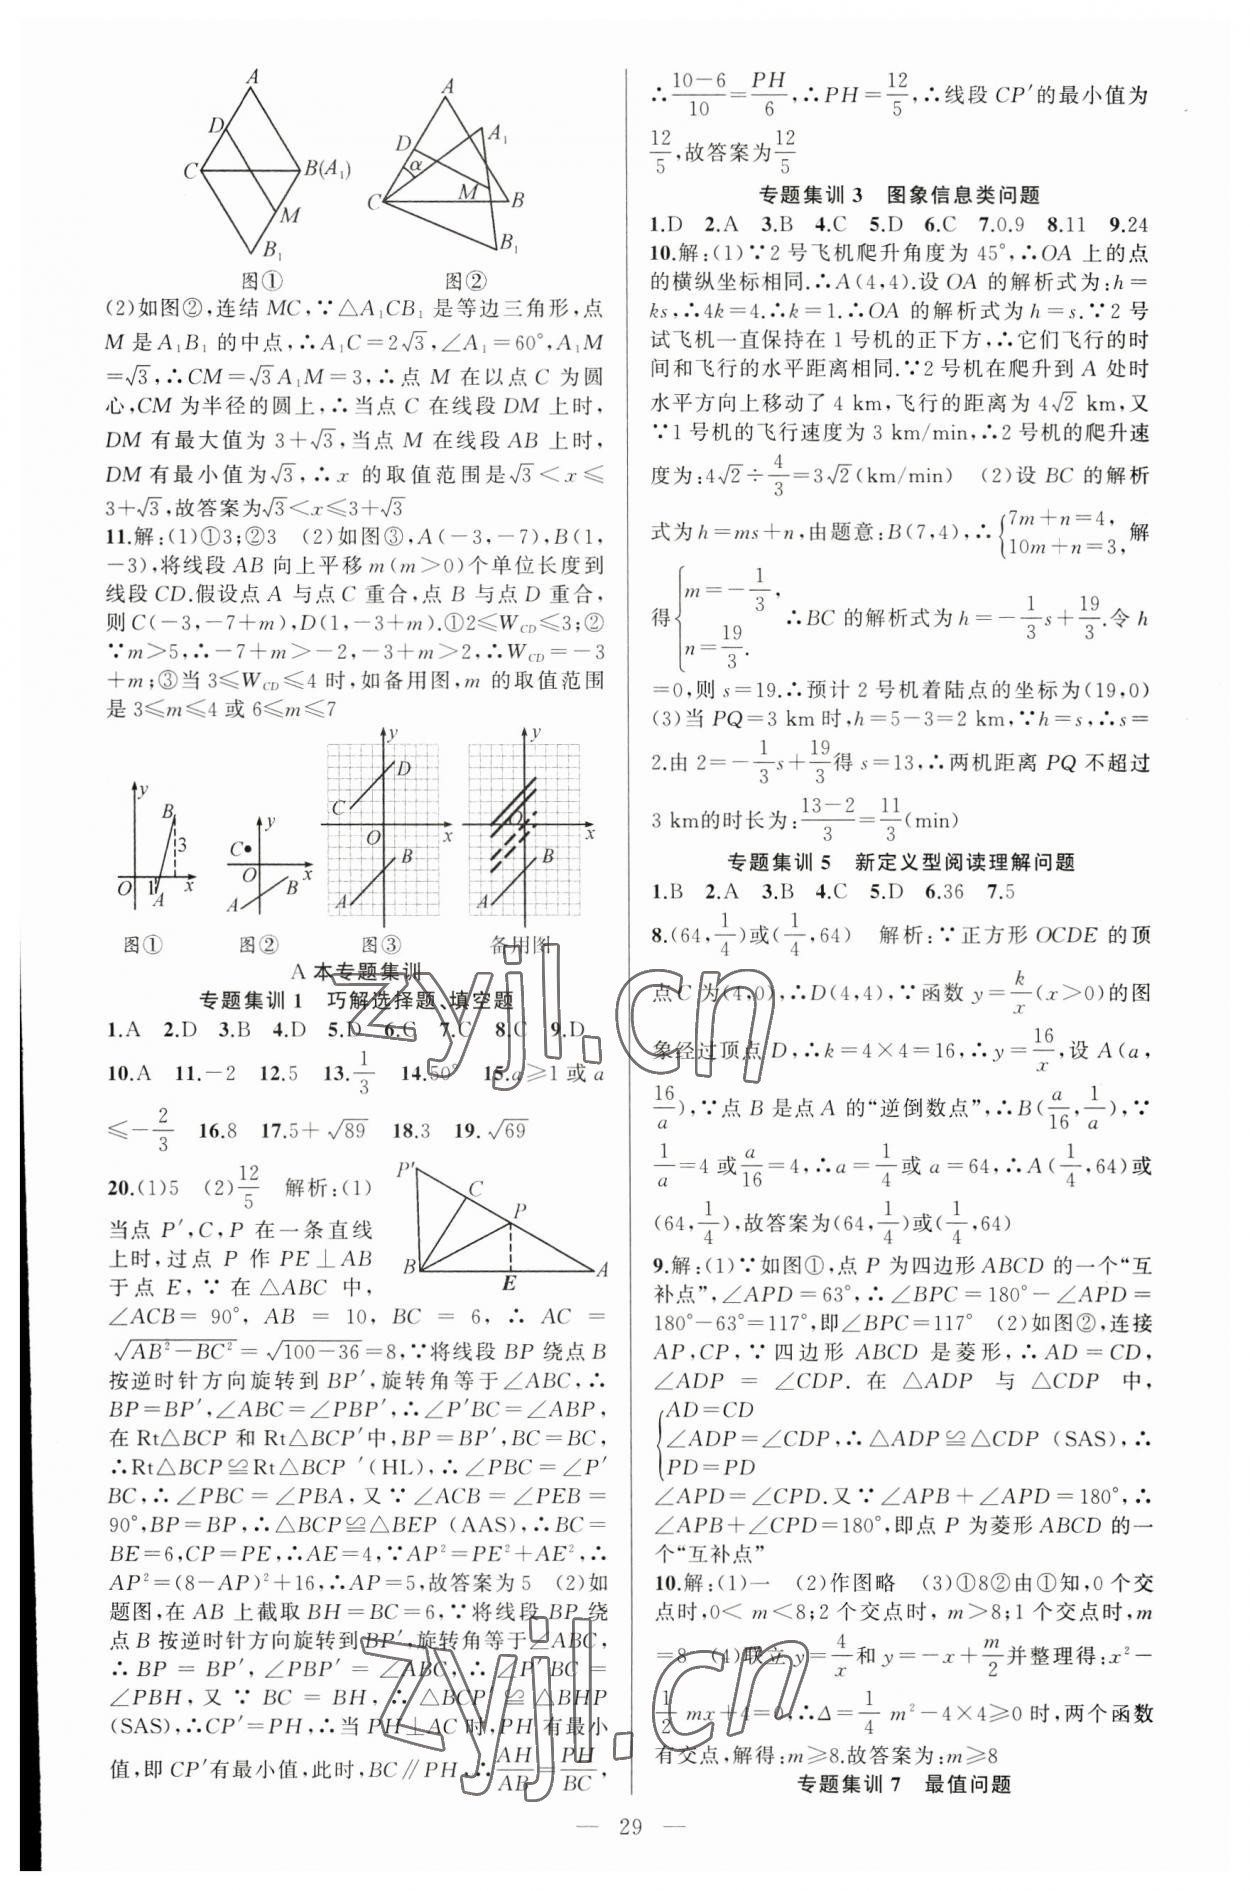 A
D
C
B(A₁)
M
B₁
图①
A
D
A₁
α
M
C
B
B₁
图②
(2)如图②,连结 MC,∵△A₁CB₁ 是等边三角形,点
M 是 A₁B₁ 的中点,∴A₁C=2√3,∠A₁=60°,A₁M
=√3,∴CM=√3A₁M=3,∴点 M 在以点 C 为圆
心,CM 为半径的圆上,∴当点 C 在线段 DM 上时,
DM 有最大值为 3+√3,当点 M 在线段 AB 上时,
DM 有最小值为√3,∴x 的取值范围是√3<x≤
3+√3,故答案为√3<x≤3+√3
11.解:(1)①3;②3 (2)如图③,A(-3,-7),B(1,
-3),将线段 AB 向上平移 m(m>0)个单位长度到
线段 CD.假设点 A 与点 C 重合,点 B 与点 D 重合,
则 C(-3,-7+m),D(1,-3+m).①2≤W_CD≤3;②
∵m>5,∴-7+m>-2,-3+m>2,∴W_CD=-3
+m;③当 3≤W_CD≤4 时,如备用图,m 的取值范围
是 3≤m≤4 或 6≤m≤7
y
B
3
O
1
A
x
图①
y
C
O
B
A
x
图②
y
D
C
O
x
B
A
图③
y
O
x
B
A
备用图
A 本专题集训
专题集训 1 巧解选择题、填空题
1.A 2.D 3.B 4.D 5.D 6.C 7.C 8.C 9.D
10.A 11.-2 12.5 13.1/3 14.50° 15.a≥1 或 a
≤-2/3 16.8 17.5+√89 18.3 19.√69
20.(1)5 (2)12/5 解析:(1)
当点 P′,C,P 在一条直线
上时,过点 P 作 PE⊥AB
于点 E,∵在△ABC 中,
P′
C
P
B
E
A
∠ACB=90°,AB=10,BC=6,∴AC=
√(AB²-BC²)=√(100-36)=8,∵将线段 BP 绕点 B
按逆时针方向旋转到 BP′,旋转角等于∠ABC,∴
BP=BP′,∠ABC=∠PBP′,∴∠P′BC=∠ABP,
在 Rt△BCP 和 Rt△BCP′中,BP=BP′,BC=BC,
∴Rt△BCP≌Rt△BCP′(HL),∴∠PBC=∠P′
BC,∴∠PBC=∠PBA,又∵∠ACB=∠PEB=
90°,BP=BP,∴△BCP≌△BEP (AAS),∴BC=
BE=6,CP=PE,∴AE=4,∵AP²=PE²+AE²,∴
AP²=(8-AP)²+16,∴AP=5,故答案为 5 (2)如
题图,在 AB 上截取 BH=BC=6,∵将线段 BP 绕
点 B 按逆时针方向旋转到 BP′,旋转角等于∠ABC,
∴BP=BP′,∠PBP′=∠ABC,∴∠P′BC=
∠PBH,又∵BC=BH,∴△BCP′≌△BHP
(SAS),∴CP′=PH,∴当 PH⊥AC 时,PH 有最小
值,即 CP′有最小值,此时,BC∥PH,∴AH/AB=PH/BC,
∴(10-6)/10=PH/6,∴PH=12/5,∴线段 CP′的最小值为
12/5,故答案为12/5
专题集训 3 图象信息类问题
1.D 2.A 3.B 4.C 5.D 6.C 7.0.9 8.11 9.24
10.解:(1)∵2 号飞机爬升角度为 45°,∴OA 上的点
的横纵坐标相同.∴A(4,4).设 OA 的解析式为:h=
ks,∴4k=4.∴k=1.∴OA 的解析式为 h=s.∵2 号
试飞机一直保持在 1 号机的正下方,∴它们飞行的时
间和飞行的水平距离相同.∵2 号机在爬升到 A 处时
水平方向上移动了 4 km,飞行的距离为 4√2 km,又
∵1 号机的飞行速度为 3 km/min,∴2 号机的爬升速
度为:4√2÷4/3=3√2(km/min) (2)设 BC 的解析
式为 h=ms+n,由题意:B(7,4),∴{7m+n=4, 10m+n=3,解
得{m=-1/3, n=19/3. ∴BC 的解析式为 h=-1/3s+19/3.令 h
=0,则 s=19.∴预计 2 号机着陆点的坐标为(19,0)
(3)当 PQ=3 km 时,h=5-3=2 km,∵h=s,∴s=
2.由 2=-1/3s+19/3得 s=13,∴两机距离 PQ 不超过
3 km的时长为:(13-2)/3=11/3(min)
专题集训 5 新定义型阅读理解问题
1.B 2.A 3.B 4.C 5.D 6.36 7.5
8.(64,1/4)或(1/4,64) 解析:∵正方形 OCDE 的顶
点 C 为(4,0),∴D(4,4),∵函数 y=k/x(x>0)的图
象经过顶点 D,∴k=4×4=16,∴y=16/x,设 A(a,
16/a),∵点 B 是点 A 的“逆倒数点”,∴B(a/16,1/a),∵
1/a=4 或a/16=4,∴a=1/4或 a=64,∴A(1/4,64)或
(64,1/4),故答案为(64,1/4)或(1/4,64)
9.解:(1)∵如图①,点 P 为四边形 ABCD 的一个“互
补点”,∠APD=63°,∴∠BPC=180°-∠APD=
180°-63°=117°,即∠BPC=117° (2)如图②,连接
AP,CP,∵四边形 ABCD 是菱形,∴AD=CD,
∠ADP=∠CDP.在△ADP 与△CDP 中,
{AD=CD
∠ADP=∠CDP,∴△ADP≌△CDP (SAS),∴
PD=PD
∠APD=∠CPD.又∵∠APB+∠APD=180°,∴
∠APB+∠CPD=180°,即点 P 为菱形 ABCD 的一
个“互补点”
10.解:(1)一 (2)作图略 (3)①8②由①知,0 个交
点时,0<m<8;2 个交点时,m>8;1 个交点时,m
=8 (4)联立 y=4/x和 y=-x+m/2并整理得:x²-
1/2mx+4=0,∴Δ=1/4m²-4×4≥0 时,两个函数
有交点,解得:m≥8.故答案为:m≥8
专题集训 7 最值问题
— 29 —
zyjl.cn
zyjl.cn